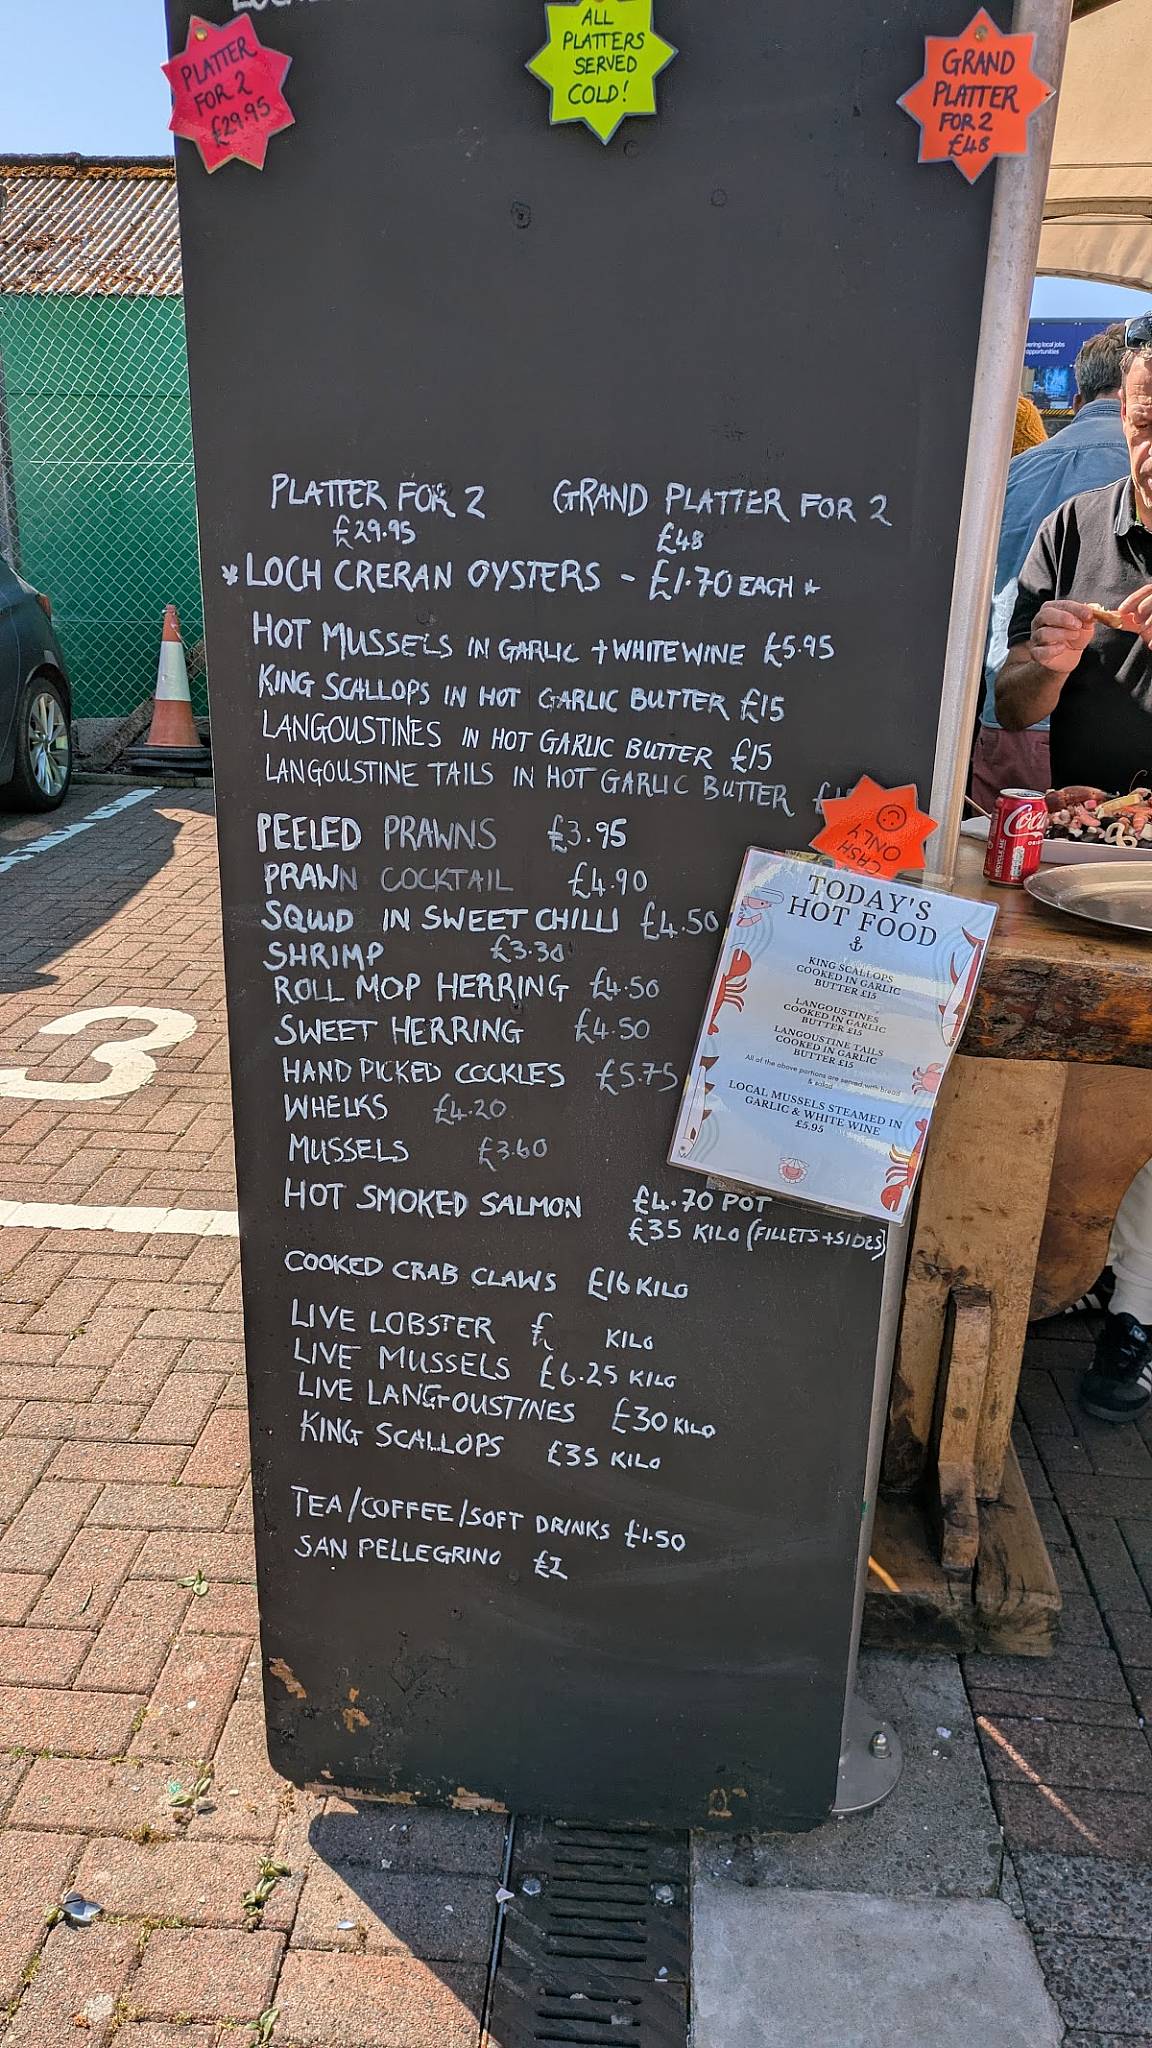 PLATTER
FOR 2
£29.95
ALL
PLATTERS
SERVED
COLD!
GRAND
PLATTER
FOR 2
£48
PLATTER FOR 2
£29.95
GRAND PLATTER FOR 2
£48
*LOCH CRERAN OYSTERS - £1.70 EACH *
HOT MUSSELS IN GARLIC + WHITE WINE £5.95
KING SCALLOPS IN HOT GARLIC BUTTER £15
LANGOUSTINES IN HOT GARLIC BUTTER £15
LANGOUSTINE TAILS IN HOT GARLIC BUTTER
PEELED PRAWNS £3.95
PRAWN COCKTAIL £4.90
SQUID IN SWEET CHILLI £4.50
SHRIMP £3.30
ROLL MOP HERRING £4.50
SWEET HERRING £4.50
HAND PICKED COCKLES £5.75
WHELKS £4.20
MUSSELS £3.60
HOT SMOKED SALMON £4.70 POT
£35 KILO (FILLETS + SIDES)
COOKED CRAB CLAWS £16 KILO
LIVE LOBSTER £ KILO
LIVE MUSSELS £6.25 KILO
LIVE LANGOUSTINES £30 KILO
KING SCALLOPS £35 KILO
TEA/COFFEE/SOFT DRINKS £1.50
SAN PELLEGRINO £2
CASH
ONLY
TODAY'S
HOT FOOD
KING SCALLOPS
COOKED IN GARLIC
BUTTER £15
LANGOUSTINES
COOKED IN GARLIC
BUTTER £15
LANGOUSTINE TAILS
COOKED IN GARLIC
BUTTER £15
All of the above portions are served with bread
& salad
LOCAL MUSSELS STEAMED IN
GARLIC & WHITE WINE
£5.95
3
local jobs
opportunities
RECYCLE ME